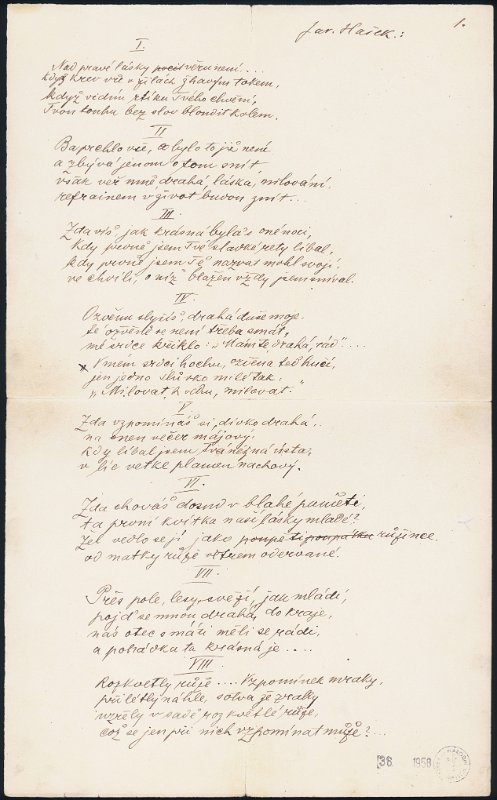 1.
Jar. Hašek.:
I.
Nad pravé lásky věru není ...
když krev vře v žilách žhavým tokem,
když vidím rtíku Tvého chvění,
Tvou touhu bez slov bloudit kolem.
II
Ba prchlo vše, a bylo to již není
a zbývá jenom o tom snít,
však věř mně drahá, láska, milování
refrainem v život budou znít...
III.
Zda víš, jak krásná bylas oné noci,
kdy prvně jsem Tvé sladké rety líbal,
kdy prvně jsem Tě nazvat mohl svojí,
ve chvíli, o níž blažen vždy jsem sníval.
IV.
Ozvěnu slyšíš, drahá duše moje
té ozvěně se není třeba smát,
mé srdce křiklo: „Mám tě drahá, rád"....
x V mém srdci hochu, ozvěna teď hučí,
jen jedno slůvko milé tak:
„Milovat, k vdnu, milovat."
V
Zda vzpomínáš si, dívko drahá,
na onen večer májový,
kdy líbal jsem Tvá něžná ústa,
v líc vétké plamen nachový.
VI.
Zda chováš dosud v blahé paměti,
ta první kvítka naší lásky mladé?
Žel vedlo se jí jako poupě ti poupátku růžince
od matky růže větrem odervané.
VII.
Přes pole, lesy, svěží, jak mládí,
pojď se mnou drahá, do kraje,
náš otec s máti měli se rádi,
a pohádka ta krásná je ....
VIII
Rozkvetly růže .... Vzpomínek mraky,
přilétly náhle, sotva že zraky
uzřely v sadě rozkvetlé růže,
což se jen při nich vzpomínat může? ...
[36 1958